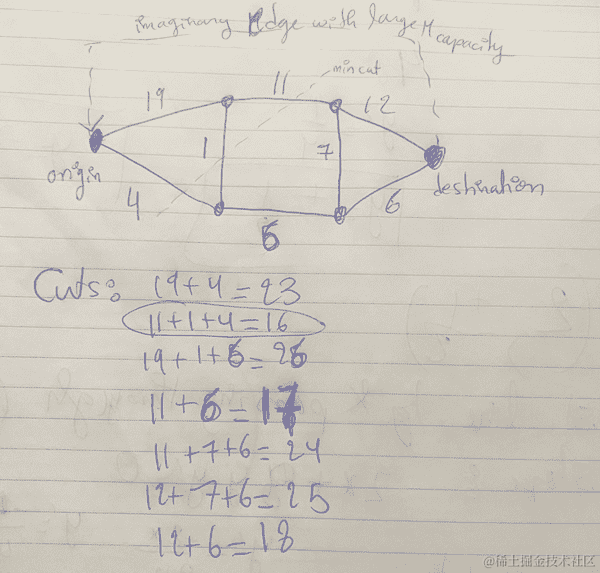 imaginary Edge with large M
capacity
min cut
19
11
12
1
7
origin
destination
4
6
6
Cuts: 19+4=23
11+1+4=16
19+1+6=26
11+6=17
11+7+6=24
12+7+6=25
12+6=18
@稀土掘金技术社区